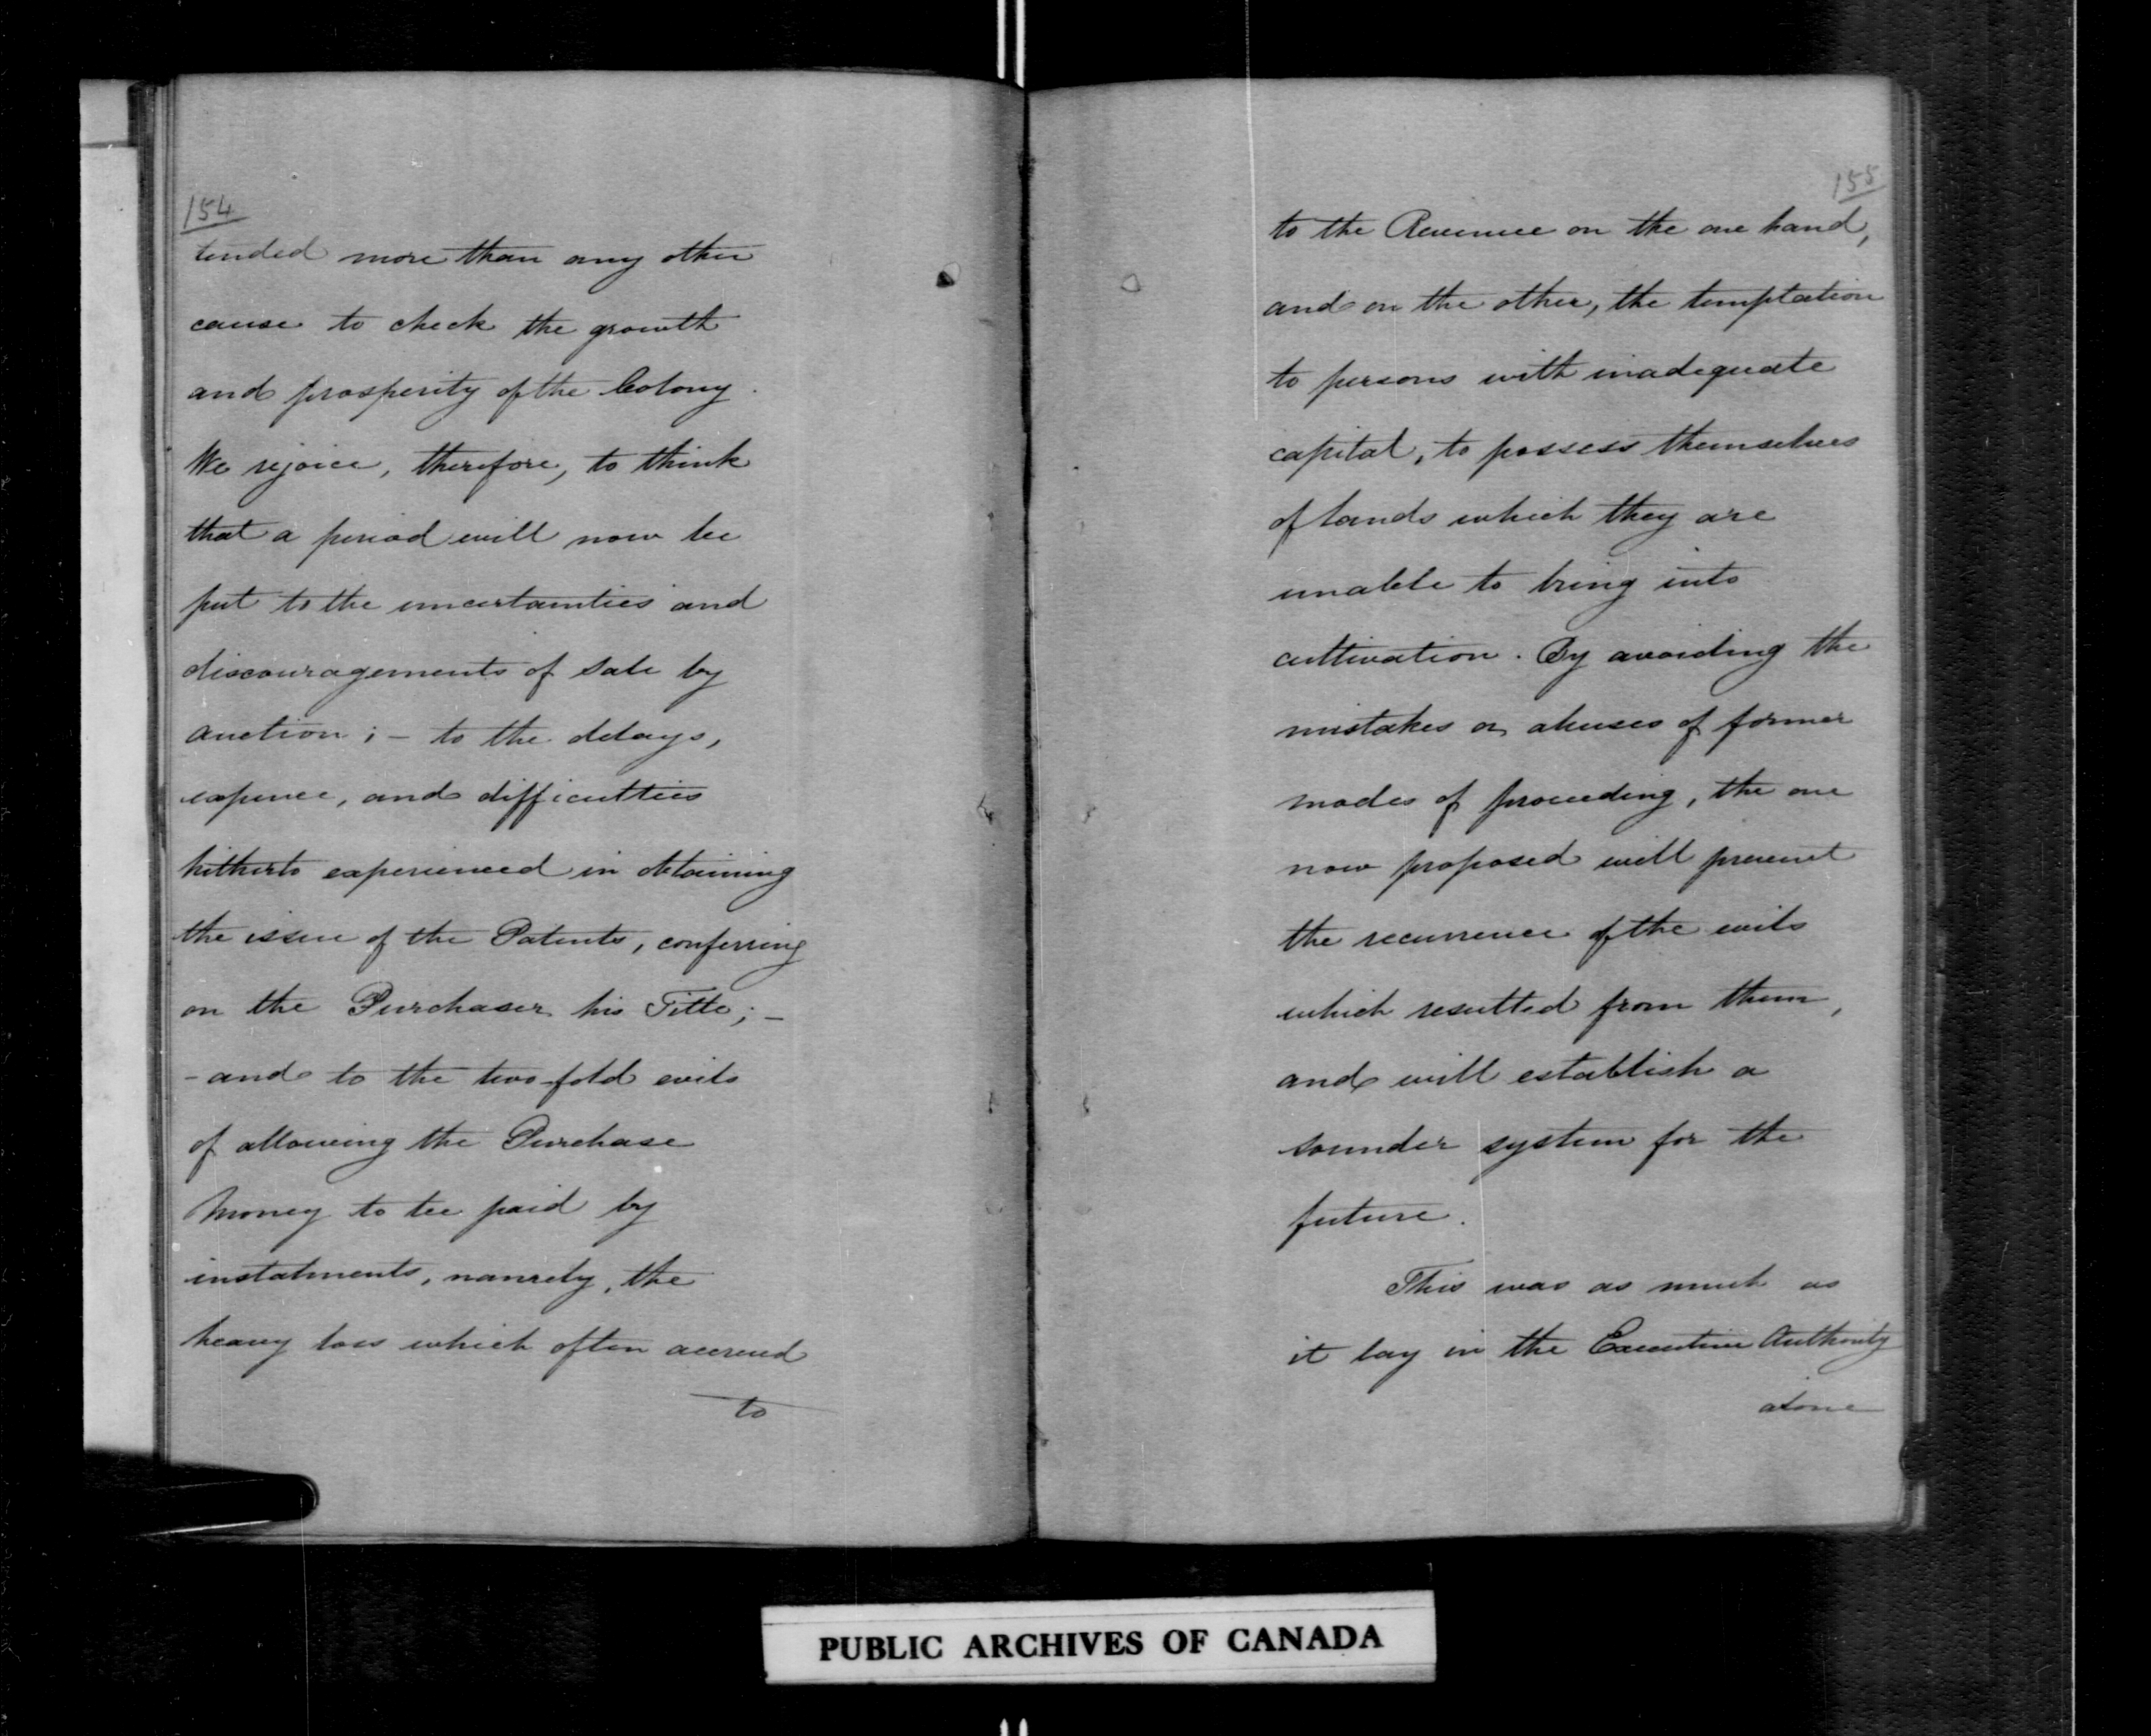 154
tended more than any other
cause to check the growth
and prosperity of the Colony.
We rejoice, therefore, to think
that a period will now be
put to the uncertainties and
discouragements of Sale by
auction; – to the delays,
expence, and difficulties
hitherto experienced in obtaining
the issue of the Patents, conferring
on the Purchaser his Title; –
– and to the two-fold evils
of allowing the Purchase
Money to be paid by
instalments, namely, the
heavy loss which often accrued
to
155
to the Revenue on the one hand,
and on the other, the temptation
to persons with inadequate
capital, to possess themselves
of lands which they are
unable to bring into
cultivation. By avoiding the
mistakes or abuses of former
modes of proceeding, the one
now proposed will prevent
the recurrence of the evils
which resulted from them,
and will establish a
sounder system for the
future.
This was as much as
it lay in the Executive Authority
alone
PUBLIC ARCHIVES OF CANADA